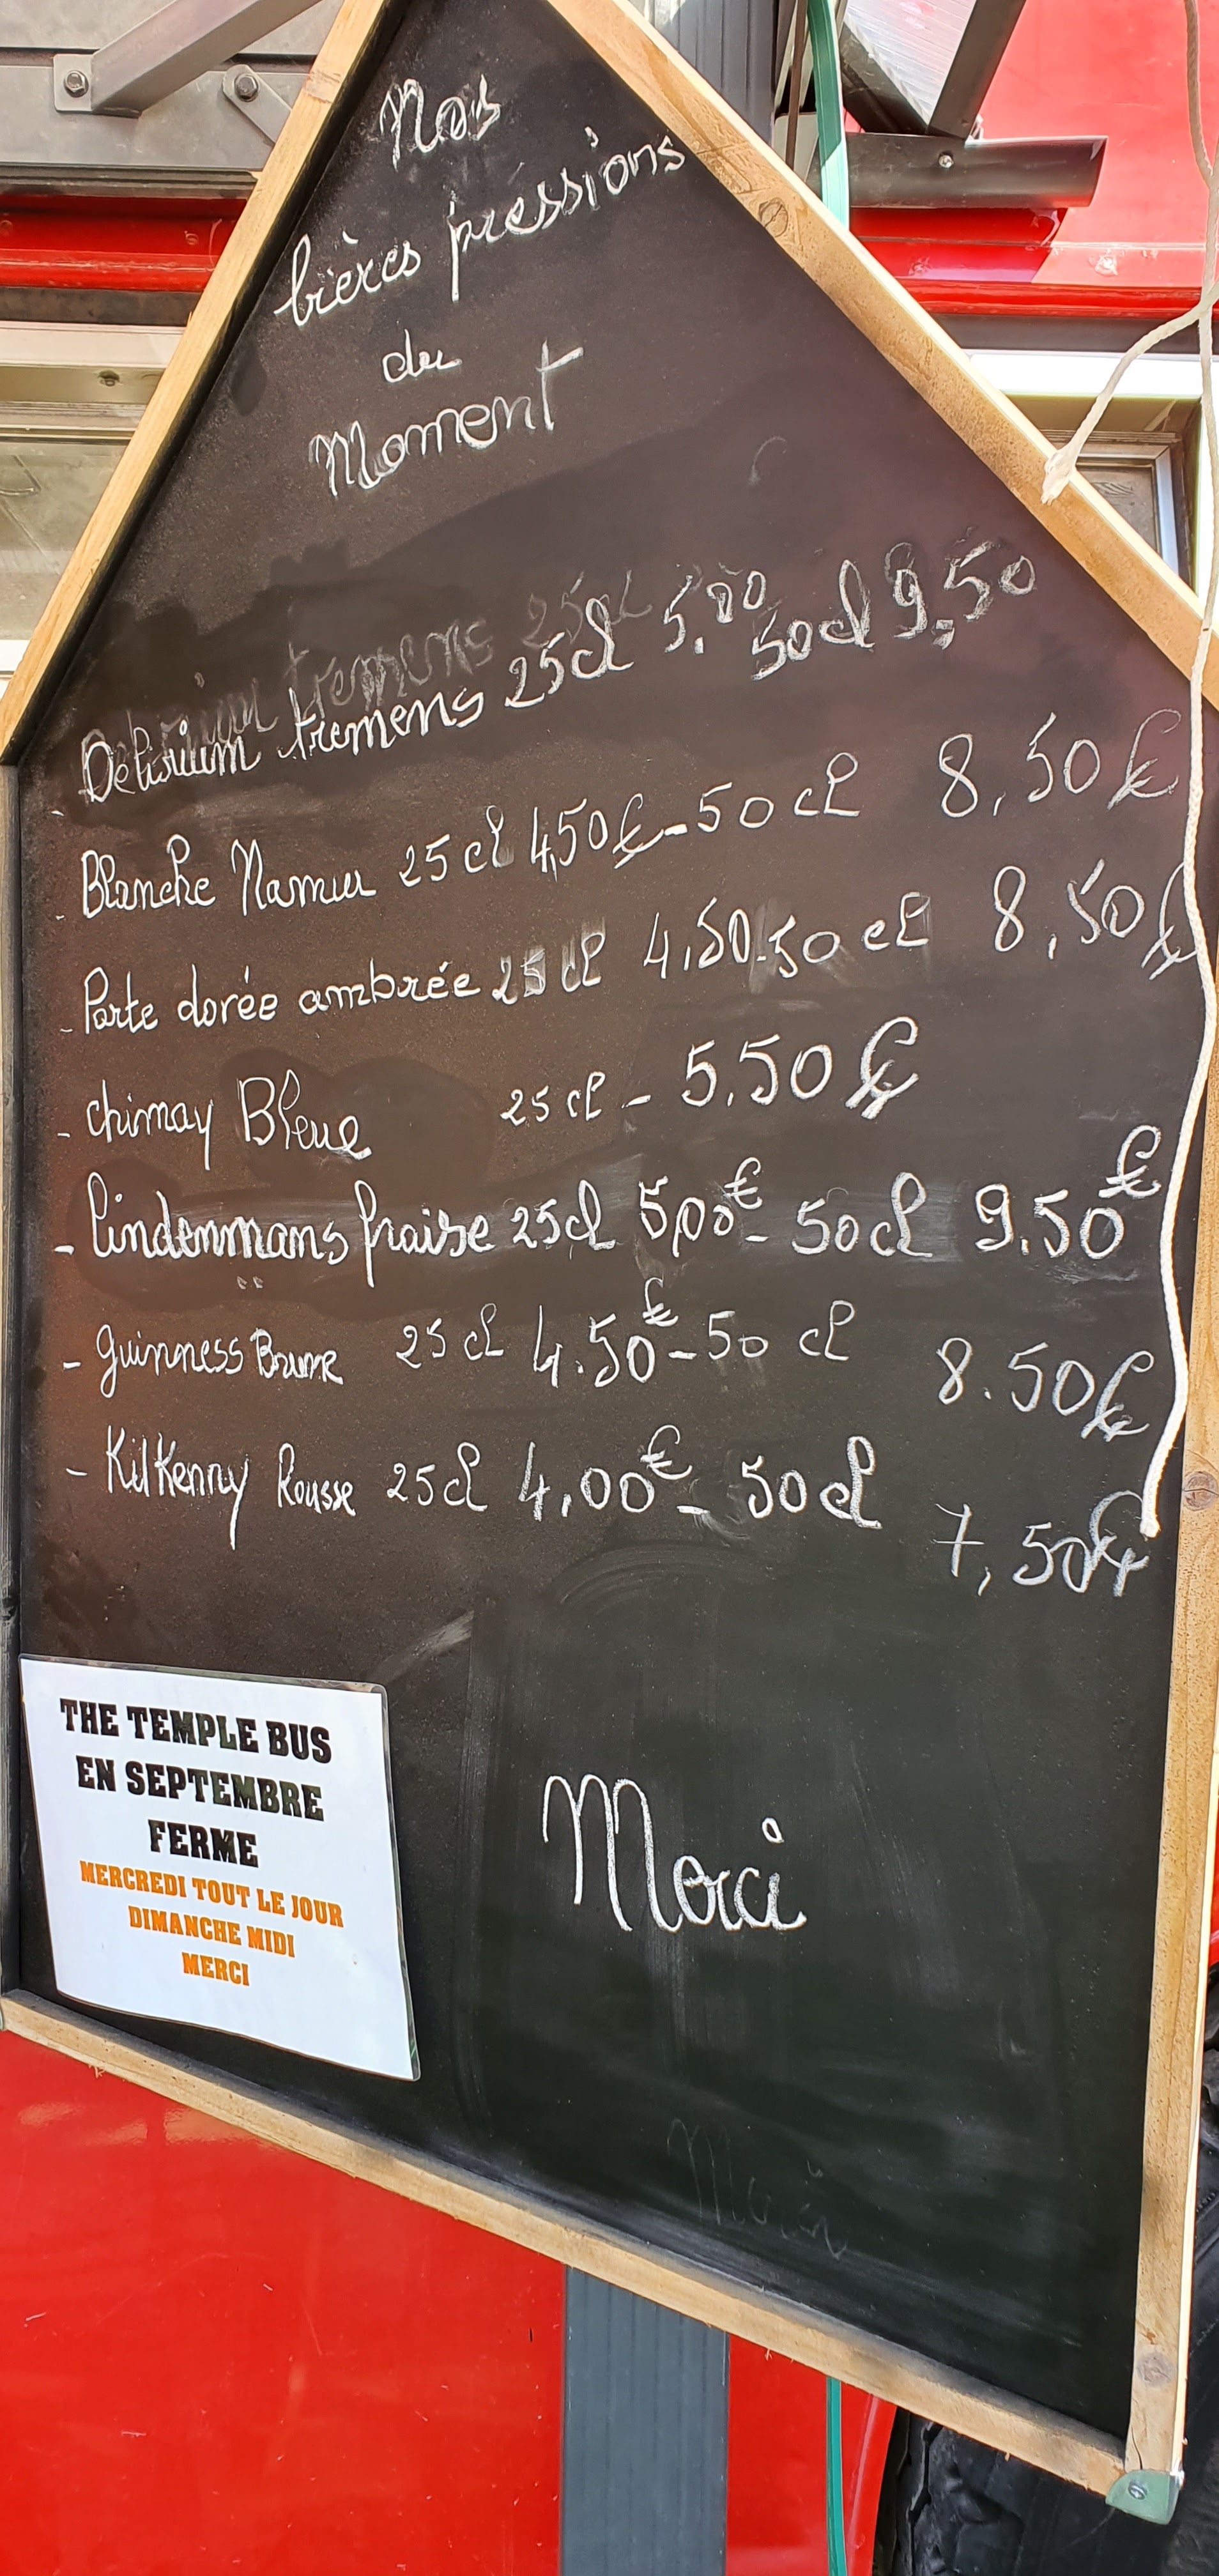 Nos
bières pressions
du
Moment
- Delirium tremens 25cl 5.00 50cl 9,50
- Blanche Namur 25cl 4,50€-50cl 8,50€
- Porte dorée ambrée 25cl 4,50-50cl 8,50€
- chimay Bleue 25cl - 5.50€
- lindenmans fraise 25cl 5,00€ - 50cl 9.50€
- guinness Brune 25cl 4.50€-50cl 8.50€
- Kilkenny Rousse 25cl 4,00€ - 50cl 7,50€
THE TEMPLE BUS
EN SEPTEMBRE
FERME
MERCREDI TOUT LE JOUR
DIMANCHE MIDI
MERCI
Merci